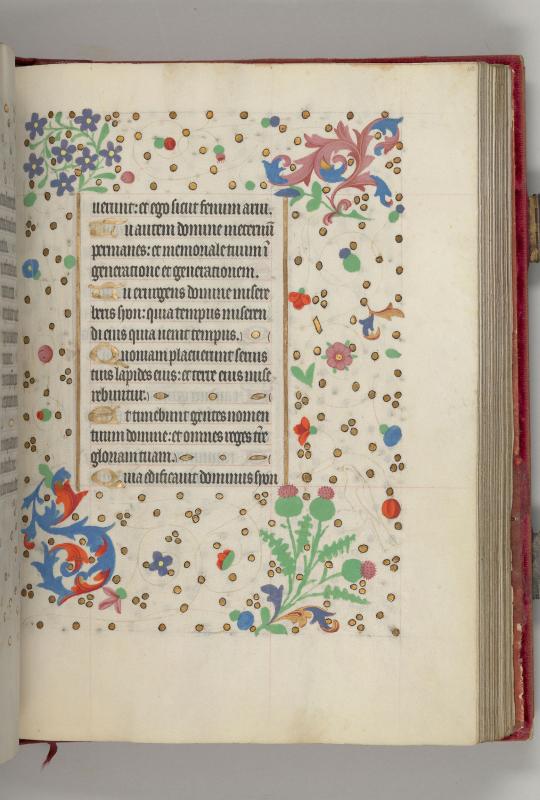 uerunt: et ego sicut fenum arui.
Tu autem domine in eternũ
permanes: et memoriale tuum ĩ
generatione et generationem.
Tu exurgens domine misere
beris syon: quia tempus miseren
di eius quia uenit tempus.
Quoniam placuerunt seruis
tuis lapides eius: et terre eius mise
rebuntur.
Et timebunt gentes nomen
tuum domine: et omnes reges tr̃e
gloriam tuam.
Quia edificauit dominus syon